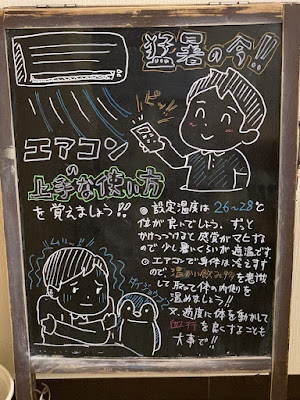 猛暑の今!!
ピッ
エアコン
の
上手な使い方
を覚えましょう!!
◎設定温度は26〜28℃と
体が良いでしょう、ずっと
かけっつけると感覚がマヒする
ので少し暑いくらいが適温です
◎エアコンで身体は冷えます
ので温かい飲み物を意識
して取って体の内側を
温めましょう!!
又、適度に体を動かして
血行を良くすることも
大事です!!